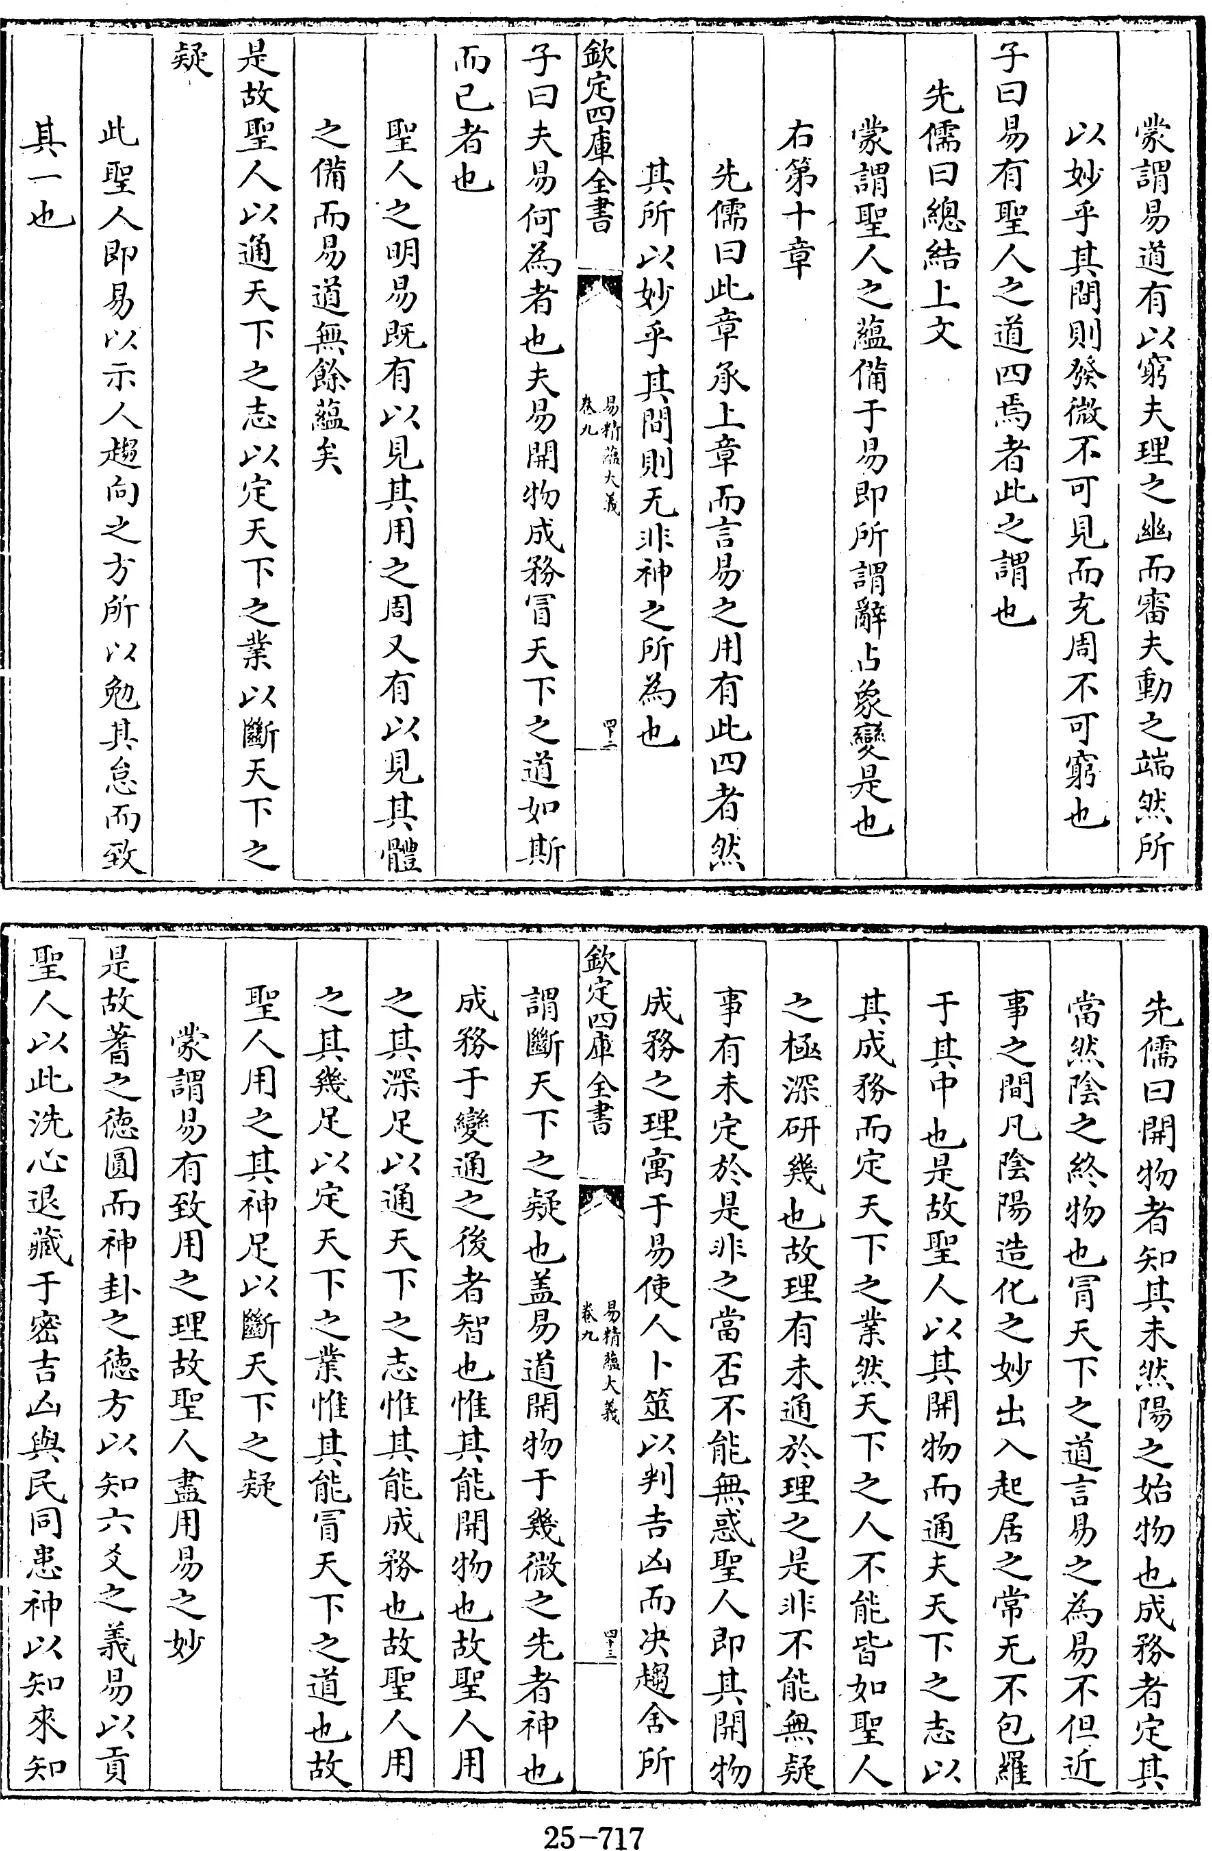 蒙謂易道有以窮夫理之幽而審夫動之端然所
以妙乎其間則發微不可見而充周不可窮也
子曰易有聖人之道四焉者此之謂也
先儒曰總結上文
蒙謂聖人之蘊備于易即所謂辭占象變是也
右第十章
先儒曰此章承上章而言易之用有此四者然
其所以妙乎其間則无非神之所為也
欽定四庫全書
易精蘊大義
卷九
四十二
子曰夫易何為者也夫易開物成務冒天下之道如斯
而已者也
聖人之明易既有以見其用之周又有以見其體
之備而易道無餘蘊矣
是故聖人以通天下之志以定天下之業以斷天下之
疑
此聖人即易以示人趨向之方所以勉其怠而致
其一也
先儒曰開物者知其未然陽之始物也成務者定其
當然陰之終物也冐天下之道言易之為易不但近
事之間凡陰陽造化之妙出入起居之常无不包羅
于其中也是故聖人以其開物而通夫天下之志以
其成務而定天下之業然天下之人不能皆如聖人
之極深研幾也故理有未通於理之是非不能無疑
事有未定於是非之當否不能無惑聖人即其開物
成務之理寓于易使人卜筮以判吉凶而决趨舍所
欽定四庫全書
易精蘊大義
卷九
四十三
謂斷天下之疑也盖易道開物于幾微之先者神也
成務于變通之後者智也惟其能開物也故聖人用
之其深足以通天下之志惟其能成務也故聖人用
之其幾足以定天下之業惟其能冒天下之道也故
聖人用之其神足以斷天下之疑
蒙謂易有致用之理故聖人盡用易之妙
是故蓍之德圓而神卦之德方以知六爻之義易以貢
聖人以此洗心退藏于密吉凶與民同患神以知來知
25-717